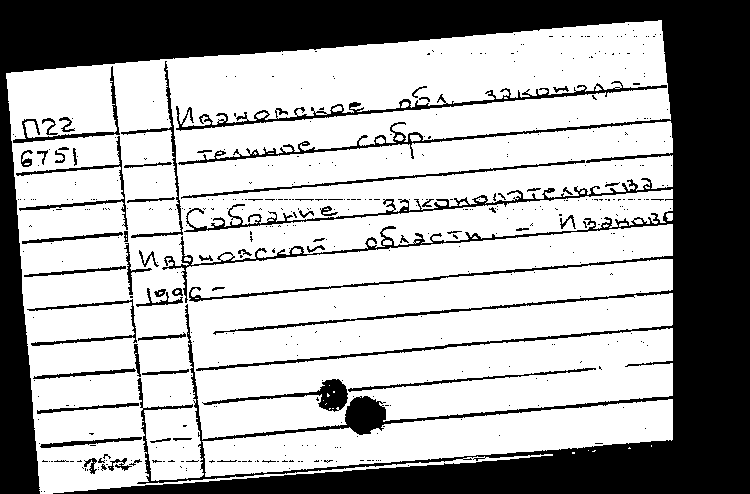 П22
6751
Ивановское обл. законода-
телиное собр.
Собрание законодательства
Ивановской области. – Иваново
1996 –